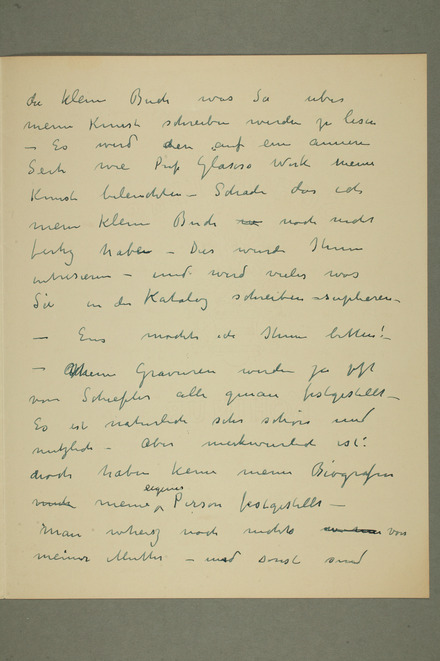 die klein Buch was Sie uber
meine Kunst schreiben werden zu lesen
– Es wird auf ein annen
Seite wie Prof Glasers Werk meine
Kunst beleuchten – Schade das ich
mein klein Buch noch nicht
fertig habe – Das wurde Ihnen
intriseren – und wird vieles was
Sie in der Katalog schreiben
– Eins mochte ich Ihnen bitten!
– Meine Gravuren wurden ja oft
von Schiefler alle genau festgestellt –
Es ist naturlich sehr schön und
nutzlich – Aber merkwurdig ist:
doch haben keine meine Biografen
meine eigenes Person festgestellt –
Man noch nichts von
meiner Mutter – und sonst sind